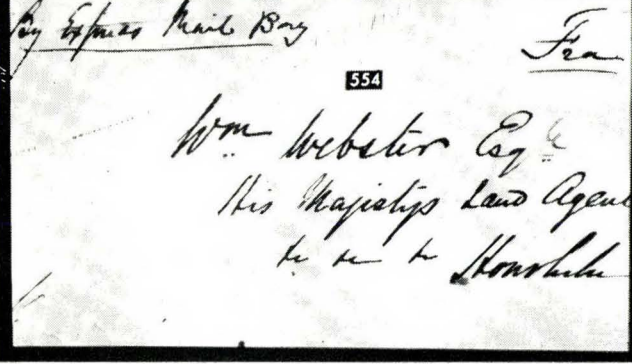 By Express Mail Boy
Fra
554
Wm Webster Esqre
His Majistys Land Agent
Honolulu